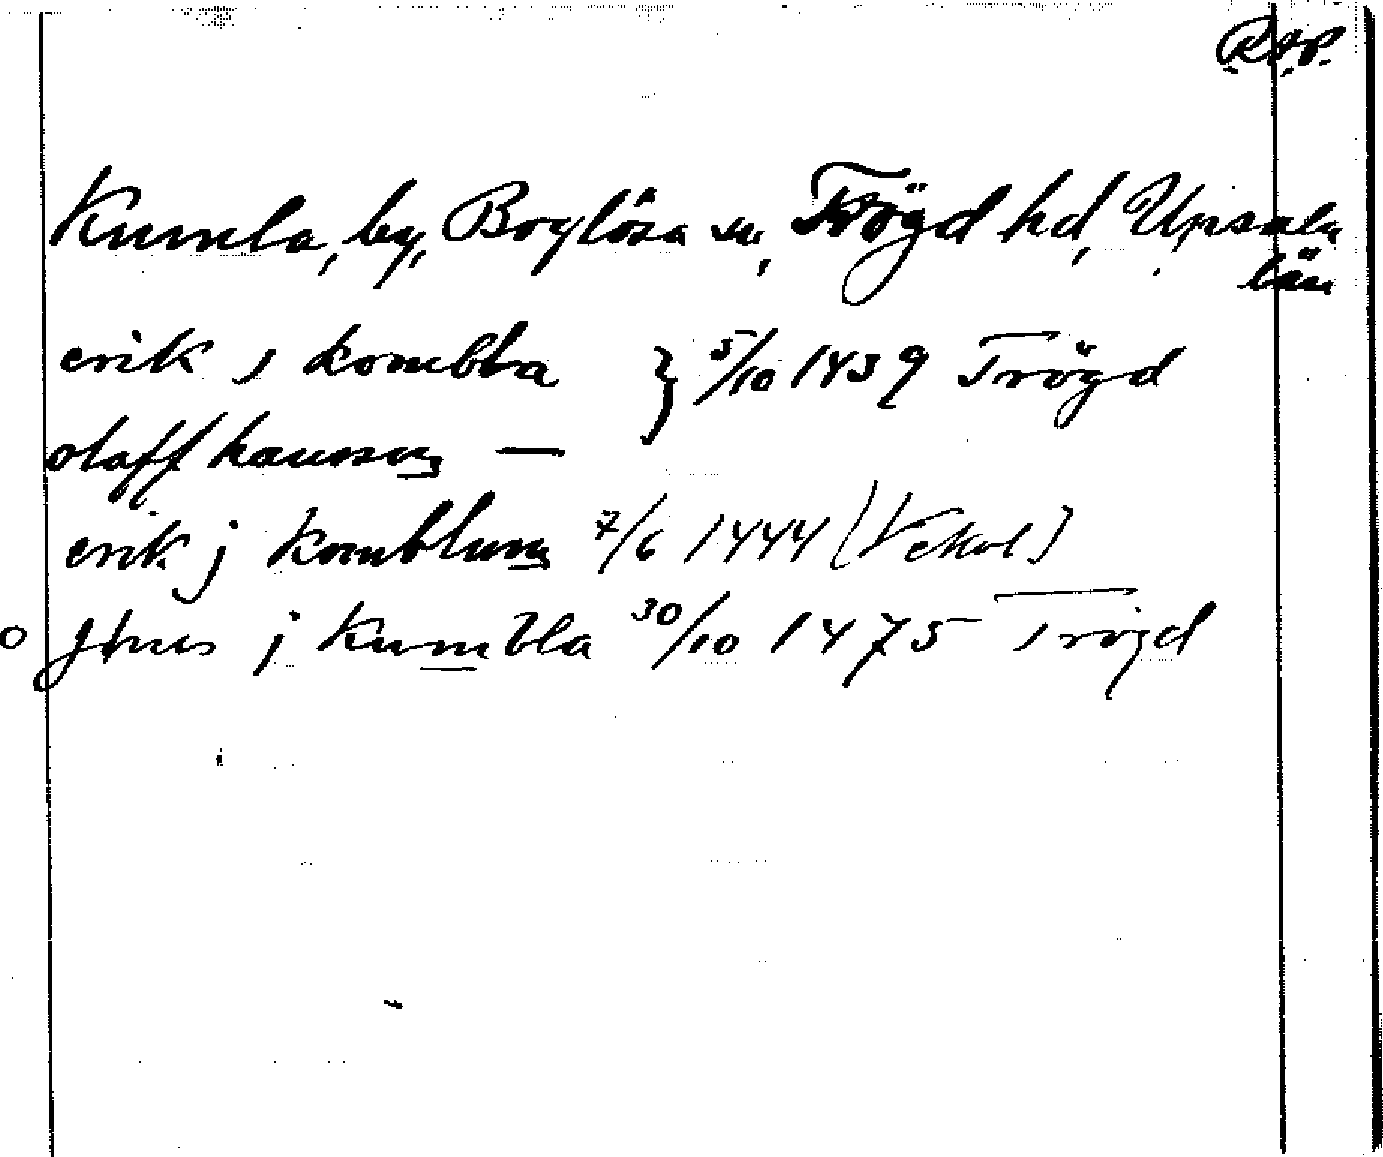 R.A.P.
Kumla, by, Boglösa sn, Trögd hd, Upsala
län
erik j kombla } 5/10 1439 Trögd
olaff hansson —
erik j komblum 7/6 1444 (Vckol)
o Jönes j kumbla 30/10 1475 Trögd